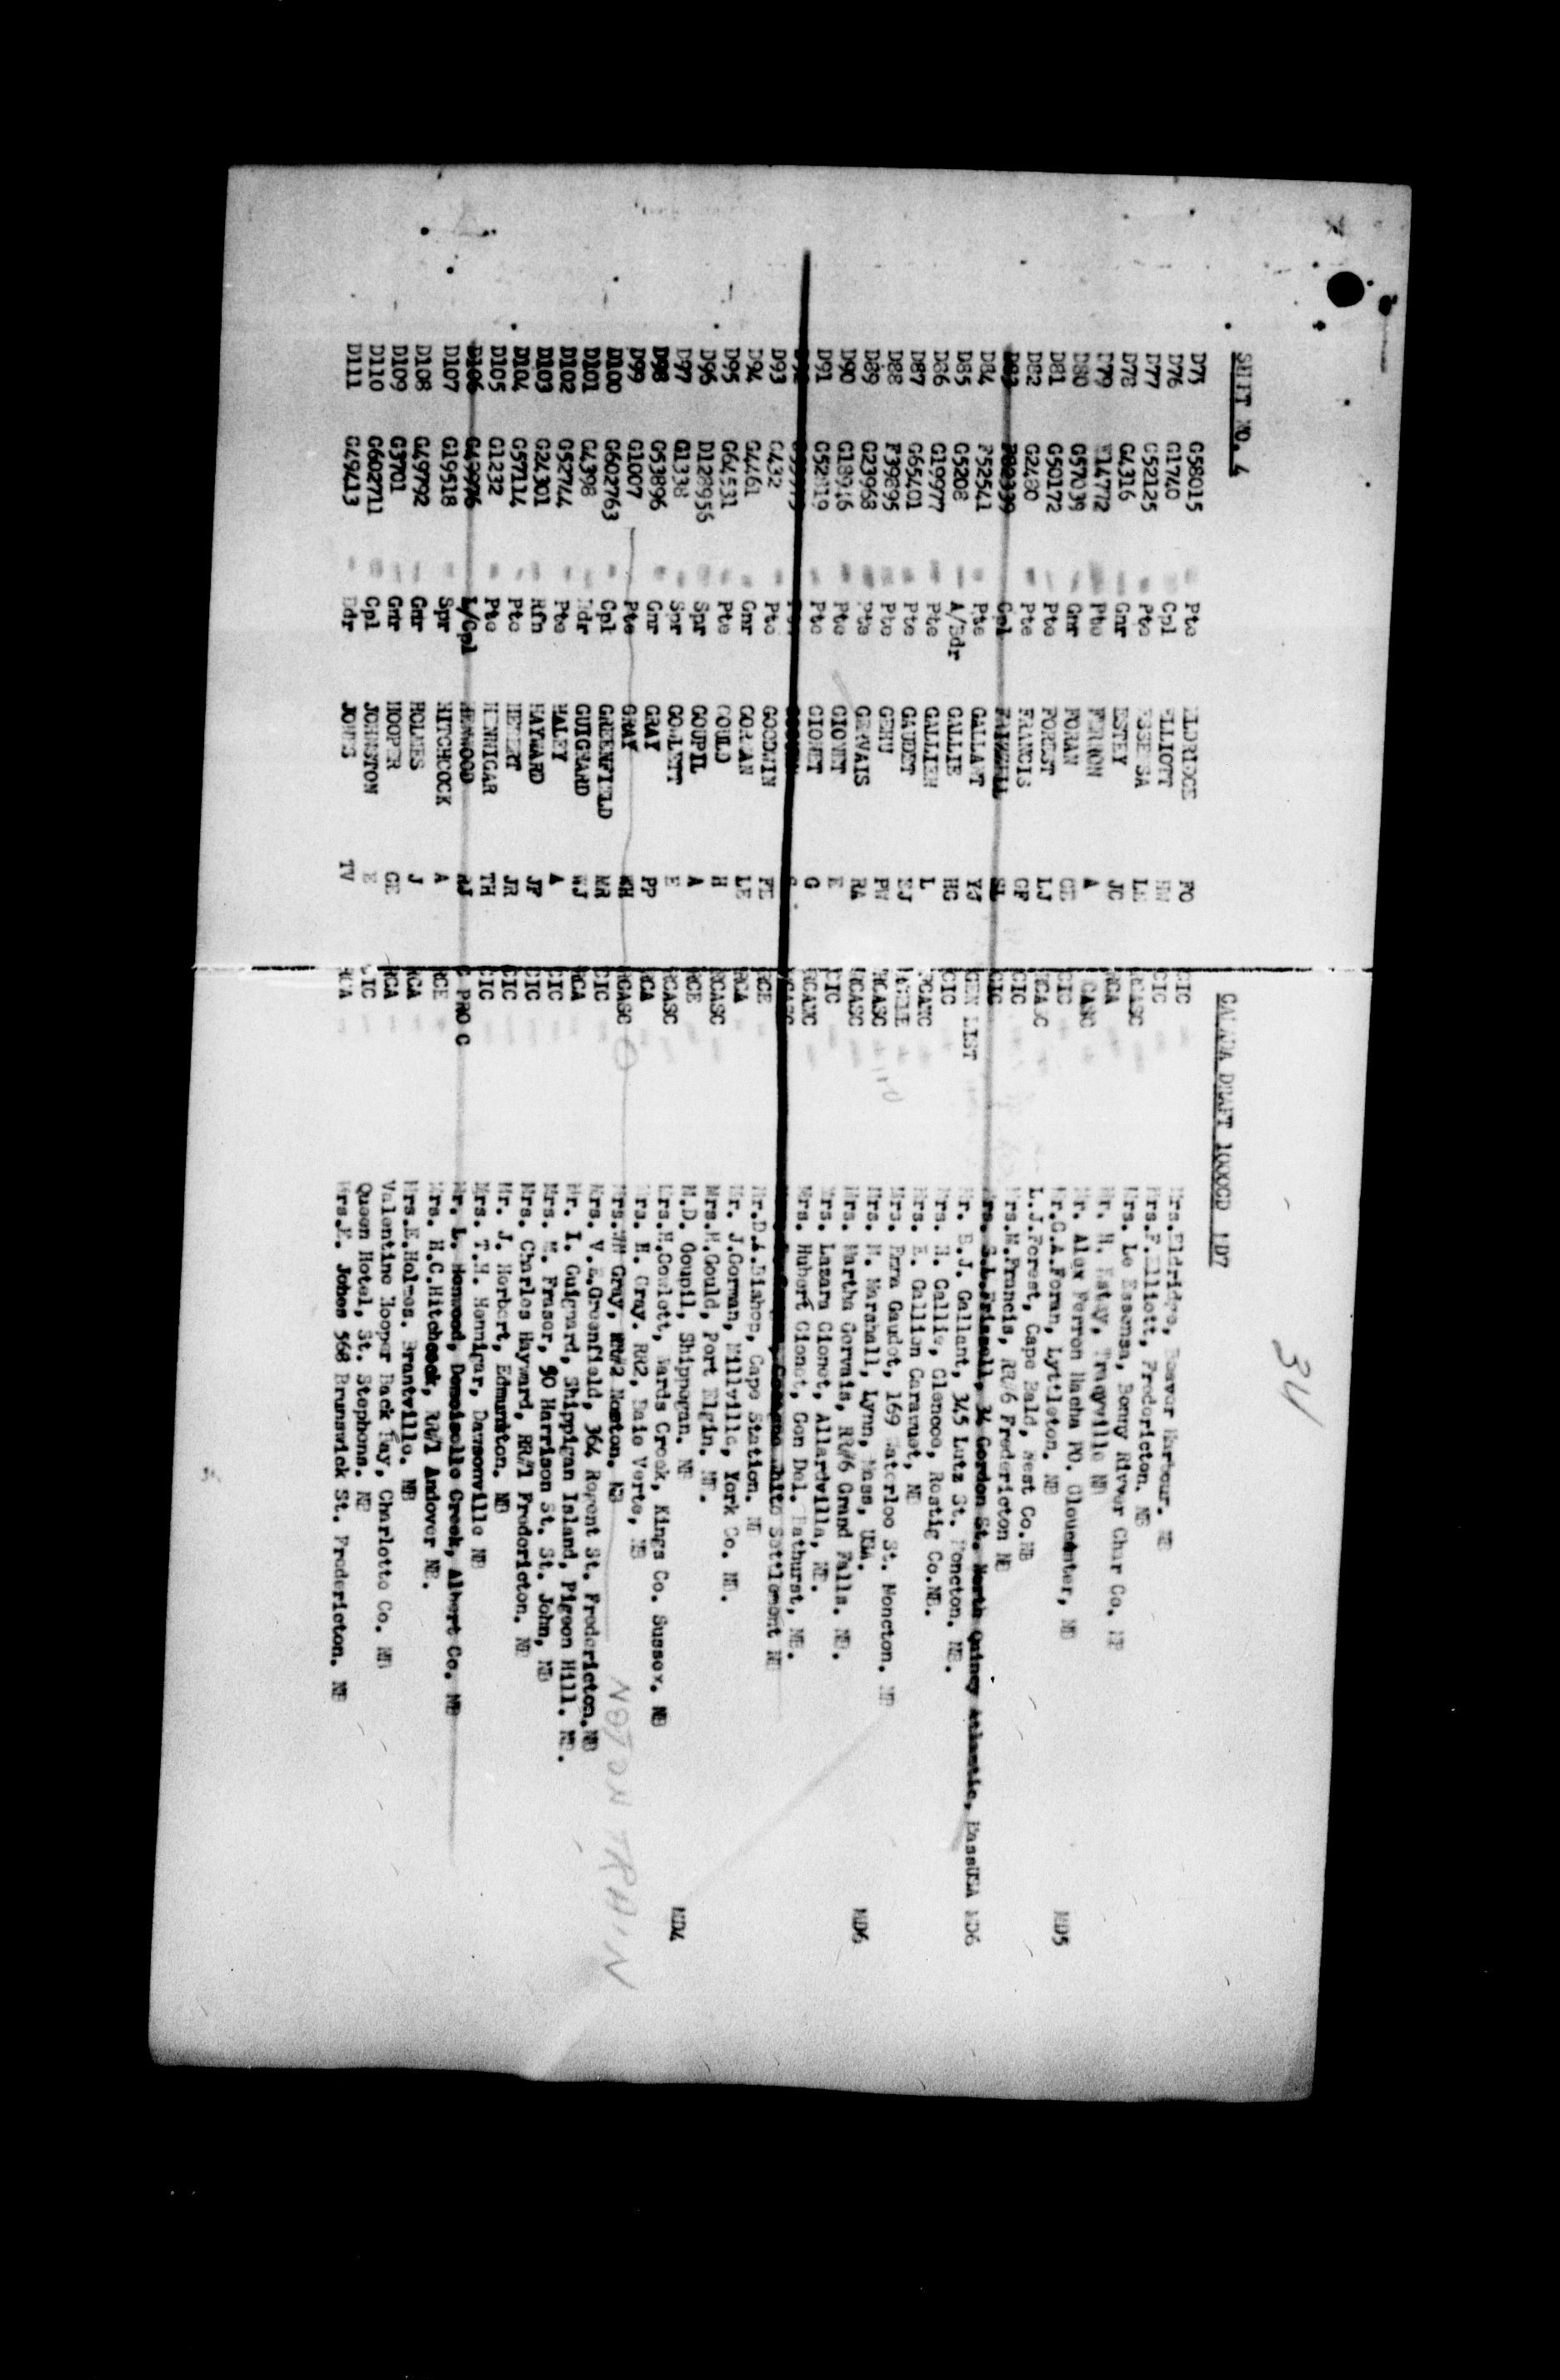 34
SHEET NO. 4 CANADA DRAFT 1000GD 1D7
D75 G58015 Pte ELDRIDGE FO CIC Mrs.Eldridge, Beaver Harbour. NB
D76 G1740 Cpl ELLIOTT CIC Mrs.F.Elliott, Fredericton. NB
D77 G52125 Pte LE Mrs. Le Essensa, Bonny River Char Co. NB
D78 G4316 Gnr ESTEY JC RCA Mr. H. Estey, Tracyville NB
D79 F14772 Pte FERRON A Mr. Alex Ferron Hacha PO. NB
D80 G57039 Gnr FORAN Mr.G.A.Foran, Lyttleton. NB
D81 G50172 Pte FOREST LJ L.J.Forest, Cape Bald, West Co.NB MD5
D82 G2480 Pte FRANCIS GF CIC Mrs.M.Francis, RR#6 Fredericton NB
D83 Cpl SL CIC 34 Gordon St. North Quincy Atlantic, MassUSA MD6
D84 F52541 Pte GALLANT YJ GEN LIST Mr. B.J. Gallant, 345 Lutz St. Moncton. NB.
D85 G5208 A/Bdr GALLIE HG CIC Mrs. H. Gallie, Glencoe, Restig Co.NB.
D86 G19977 Pte GALLIEN L Mrs. E. Gallien Caraquet, NB
D87 G65401 Pte GAUDET EJ Mrs. Ezra Gaudet, 169 Waterloo St. Moncton. NB
D88 F39895 Pte GEHU PW RCASC Mrs. M. Marshall, Lynn, Mass, USA. MD6
D89 G23968 Pte GERVAIS RA RCASC Mrs. Martha Gervais, RR#6 Grand Falls. NB.
D90 Pte GIONET E CIC Mrs. Lazara Gionet, Allardville, NB.
D91 G52819 Pte GIONET G Mrs. Hubert Gionet, Gen Del. Bathurst, NB.
White Settlement NB
D93 G432 Pte GOODWIN FE RCE Mr.D.A.Bishop, Cape Station. NB
D94 G4461 Gnr GORMAN LE RCA Mr. J.Gorman, Millville, York Co. NB.
D95 G64531 Pte GOULD H RCASC Mrs.M.Gould, Port Elgin. NB.
D96 D128956 Spr GOUPIL A RCE M.D. Goupil, Shippegan. NB
D97 G1338 Spr E RCASC Mrs.H.Cowlett, Wards Creek, Kings Co. Sussex. NB MD4
D98 G53896 Gnr GRAY PP RCA Mrs. H. Gray. RR2, Baie Verte, NB
D99 G1007 Pte GRAY RCASC Mrs.WH Gray, RR#2 NB
D100 G602763 Cpl GREENFIELD MR CIC Mrs. V.E.Greenfield, 364 Regent St. Fredericton.NB
D101 G4398 Bdr GUIGNARD WJ RCA Mr. I. Guignard, Shippigan Island, Pigeon Hill. NB.
D102 G52744 Pte HALEY A CIC Mrs. M. Fraser, 50 Harrison St. St. John, NB
D103 G24301 Rfn HAYWARD JF CIC Mrs. Charles Hayward, RR#1 Fredericton. NB
D104 G57114 Pte HEBERT JR CIC Mr. J. Herbert, Edmunston. NB
D105 G1232 Pte HENNIGAR TH CIC Mrs. T.H. Hennigar, Dawsonville NB
D106 G49976 L/Cpl HENWOOD RJ C PRO C Mr. L. Henwood, Demoiselle Creek, Albert Co. NB
D107 G19518 Spr HITCHCOCK A RCE Mrs. H.C.Hitchcock, RR#1 Andover NB.
D108 G49792 Gnr HOLMES J RCA Mrs.E.Holmes. Brantville. NB
D109 G3701 Gnr HOOPER GE RCA Valentine Hooper Back Bay, Charlotte Co. NB
D110 G602711 Cpl JOHNSTON E CIC Queen Hotel, St. Stephens. NB
D111 G49413 Bdr JONES TV RCA Mrs.E. Jobes 568 Brunswick St. Fredericton. NB
NOT ON TRAIN